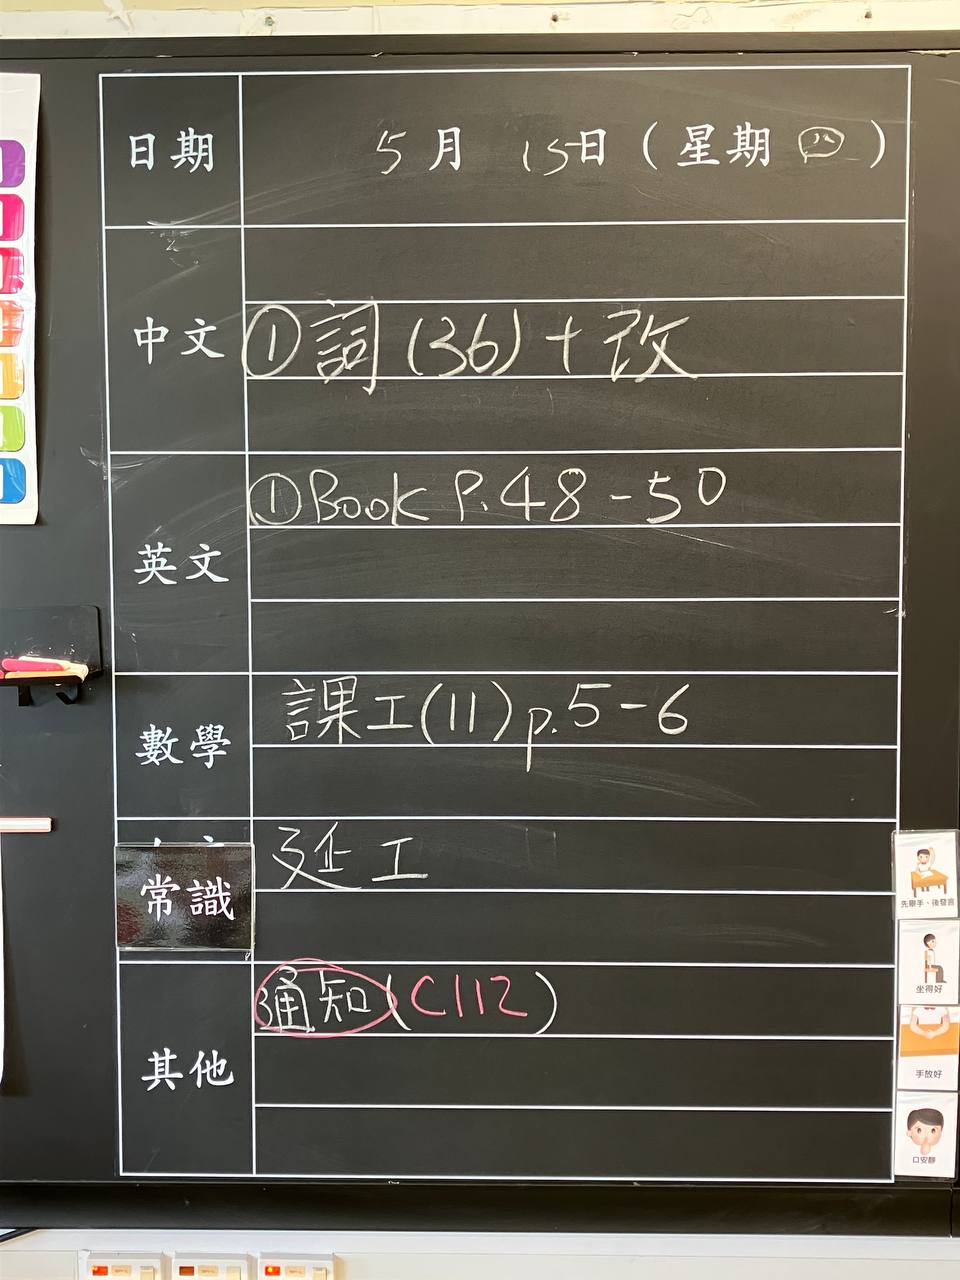 日期 5月 15日(星期四)
中文
①詞(36)+改
英文
①Book P.48-50
數學
課工(11)p.5-6
常識
延工
其他
通知(C112)
先舉手、後發言
坐得好
手放好
口安靜